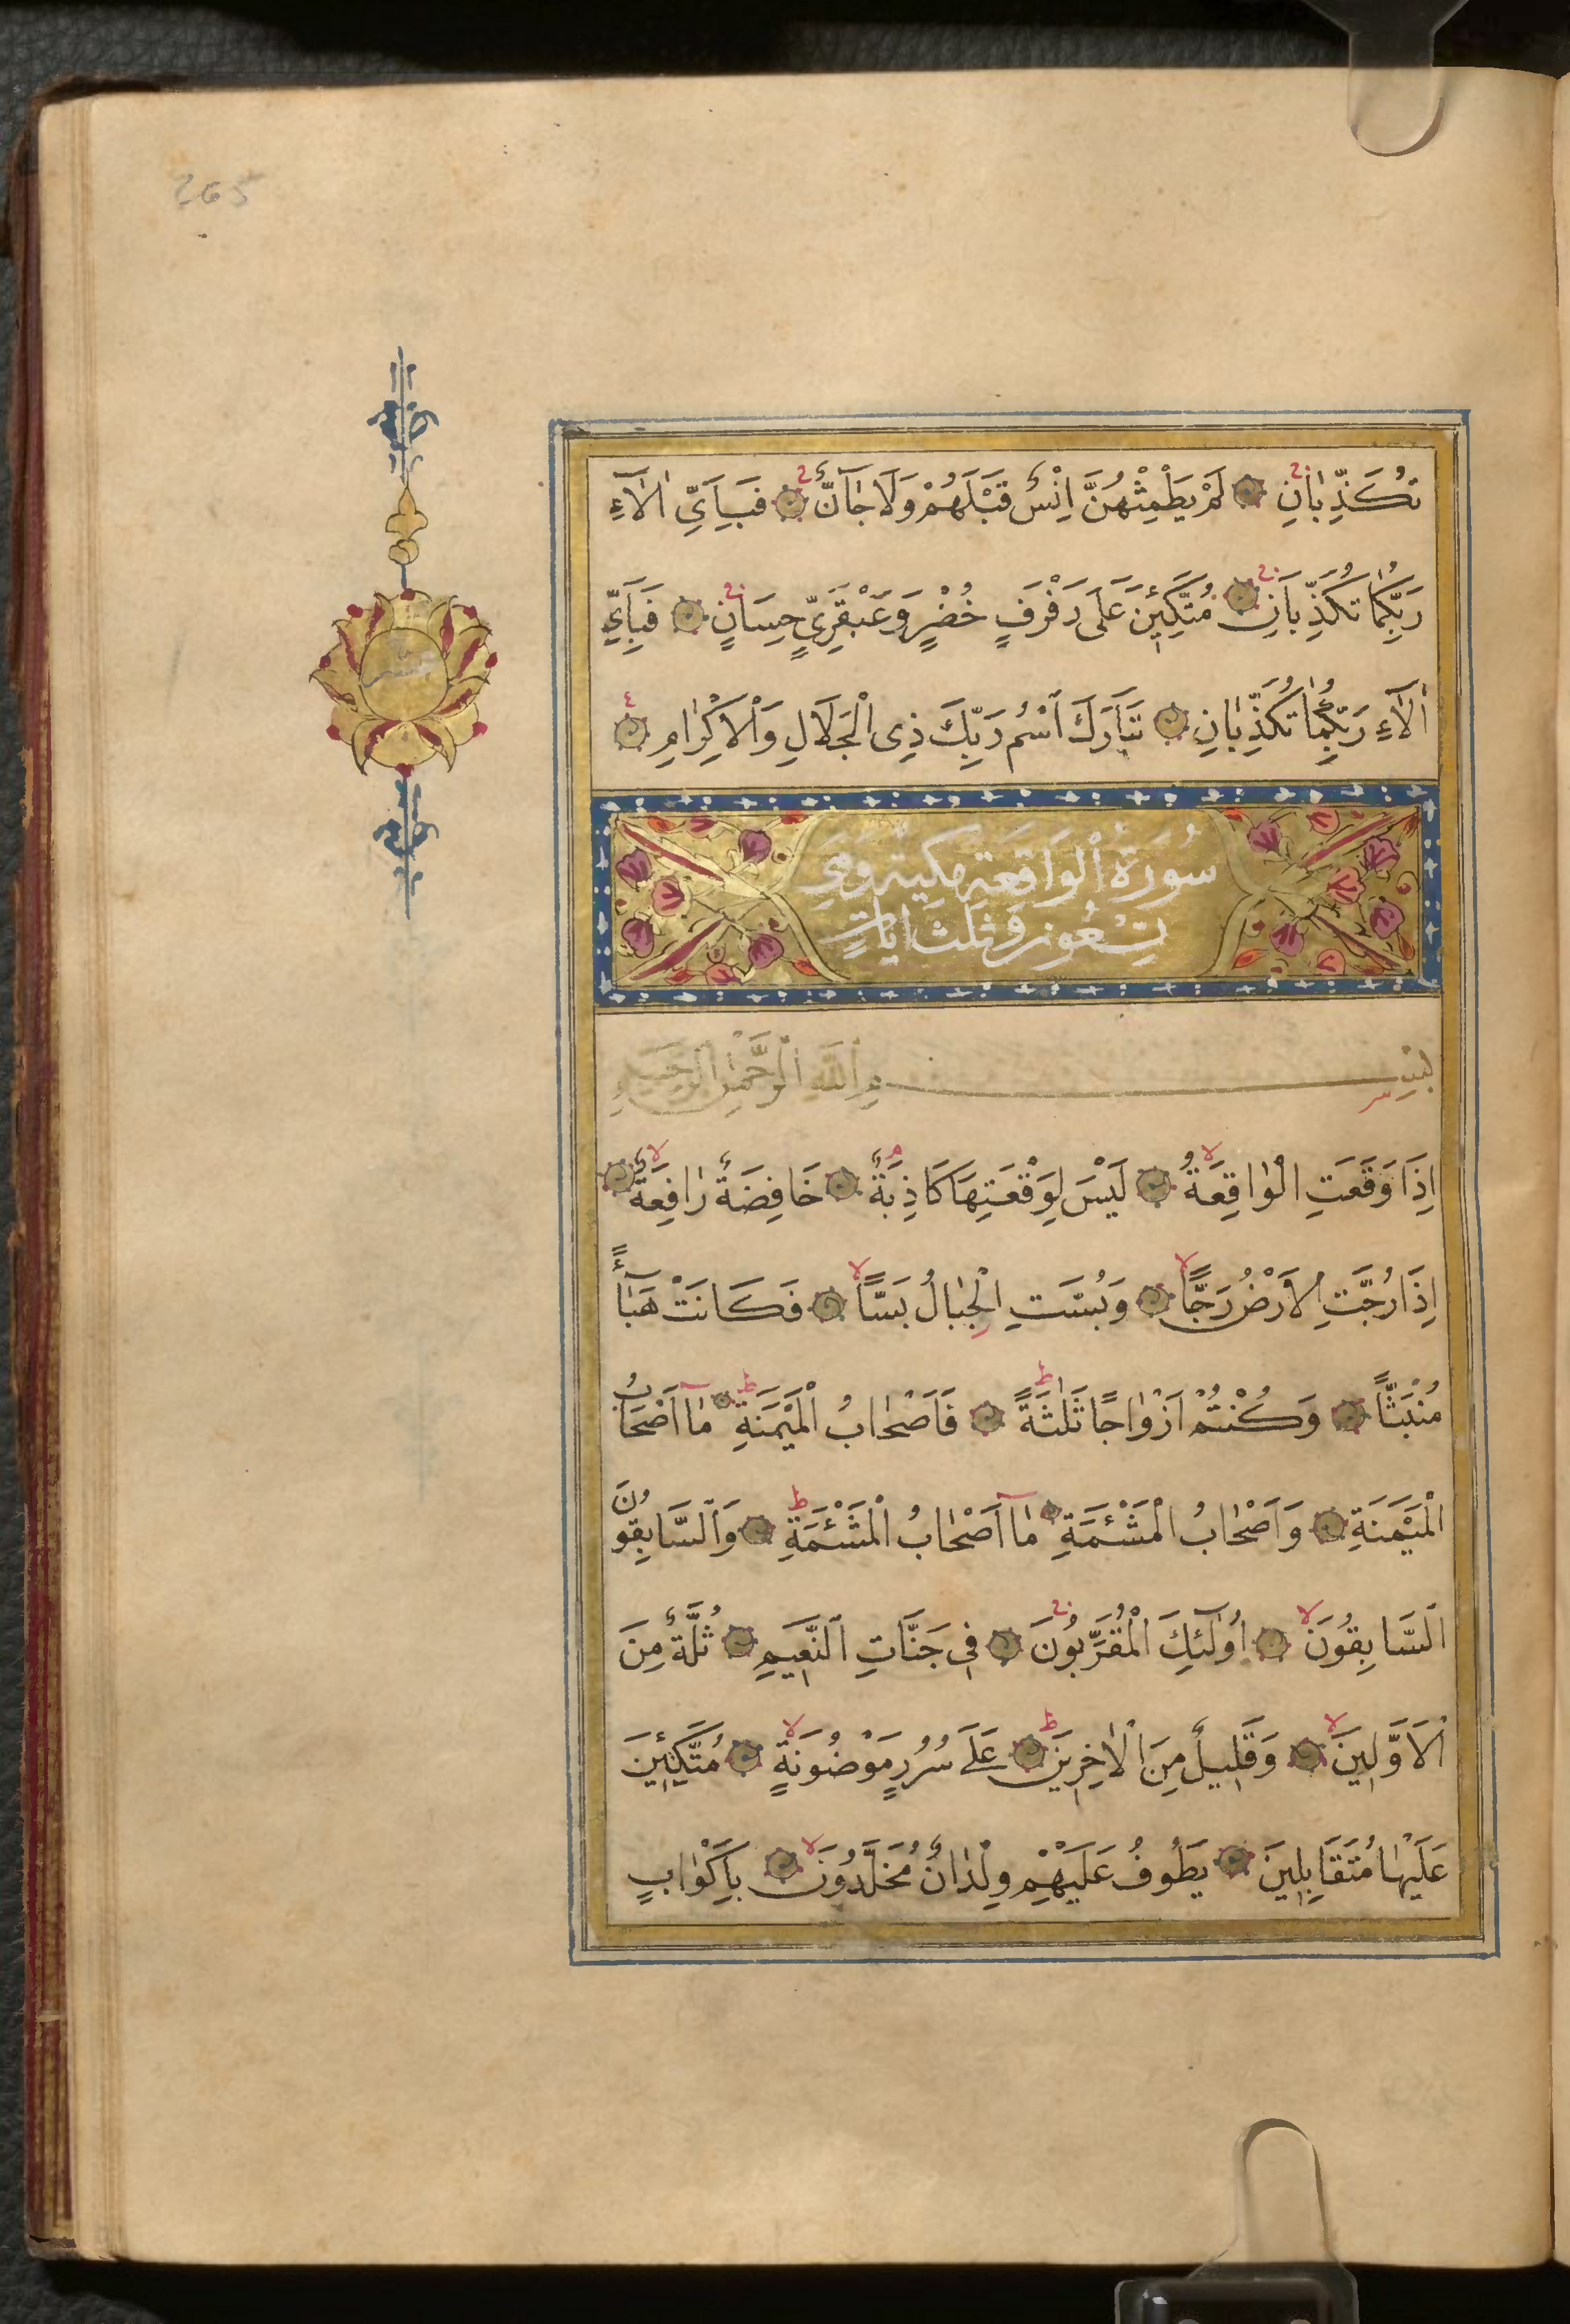 265
تُكَذِّبَانِ لَمْ يَطْمِثْهُنَّ اِنْسٌ قَبْلَهُمْ وَلَا جَٓانٌّ فَبِاَيِّ اٰلَٓاءِ
رَبِّكُمَا تُكَذِّبَانِ مُتَّكِئ۪ينَ عَلَى رَفْرَفٍ خُضْرٍ وَعَبْقَرِيٍّ حِسَانٍ فَبِاَيِّ
اٰلَٓاءِ رَبِّكُمَا تُكَذِّبَانِ تَبَارَكَ اسْمُ رَبِّكَ ذِى الْجَلَالِ وَالْاِكْرَامِ
سُورَةُ الْوَاقِعَةِ مكية وَهِيَ
تِسْعُونَ وَثلث ايَاتٍ
عشر
بِسْمِ اللّٰهِ الرَّحْمٰنِ الرَّحِيمِ
اِذَا وَقَعَتِ الْوَاقِعَةُ لَيْسَ لِوَقْعَتِهَا كَاذِبَةٌ خَافِضَةٌ رَافِعَةٌ
اِذَا رُجَّتِ الْاَرْضُ رَجًّا وَبُسَّتِ الْجِبَالُ بَسًّا فَكَانَتْ هَبَٓاءً
مُنْبَثًّا وَكُنْتُمْ اَزْوَاجًا ثَلٰثَةً فَاَصْحَابُ الْمَيْمَنَةِ مَٓا اَصْحَابُ
الْمَيْمَنَةِ وَاَصْحَابُ الْمَشْـَٔمَةِ مَٓا اَصْحَابُ الْمَشْـَٔمَةِ وَالسَّابِقُونَ
السَّابِقُونَ اُولٰٓئِكَ الْمُقَرَّبُونَ ف۪ي جَنَّاتِ النَّع۪يمِ ثُلَّةٌ مِنَ
الْاَوَّل۪ينَ وَقَل۪يلٌ مِنَ الْاٰخِر۪ينَ عَلَى سُرُرٍ مَوْضُونَةٍ مُتَّكِئ۪ينَ
عَلَيْهَا مُتَقَابِل۪ينَ يَطُوفُ عَلَيْهِمْ وِلْدَانٌ مُخَلَّدُونَ بِاَكْوَابٍ